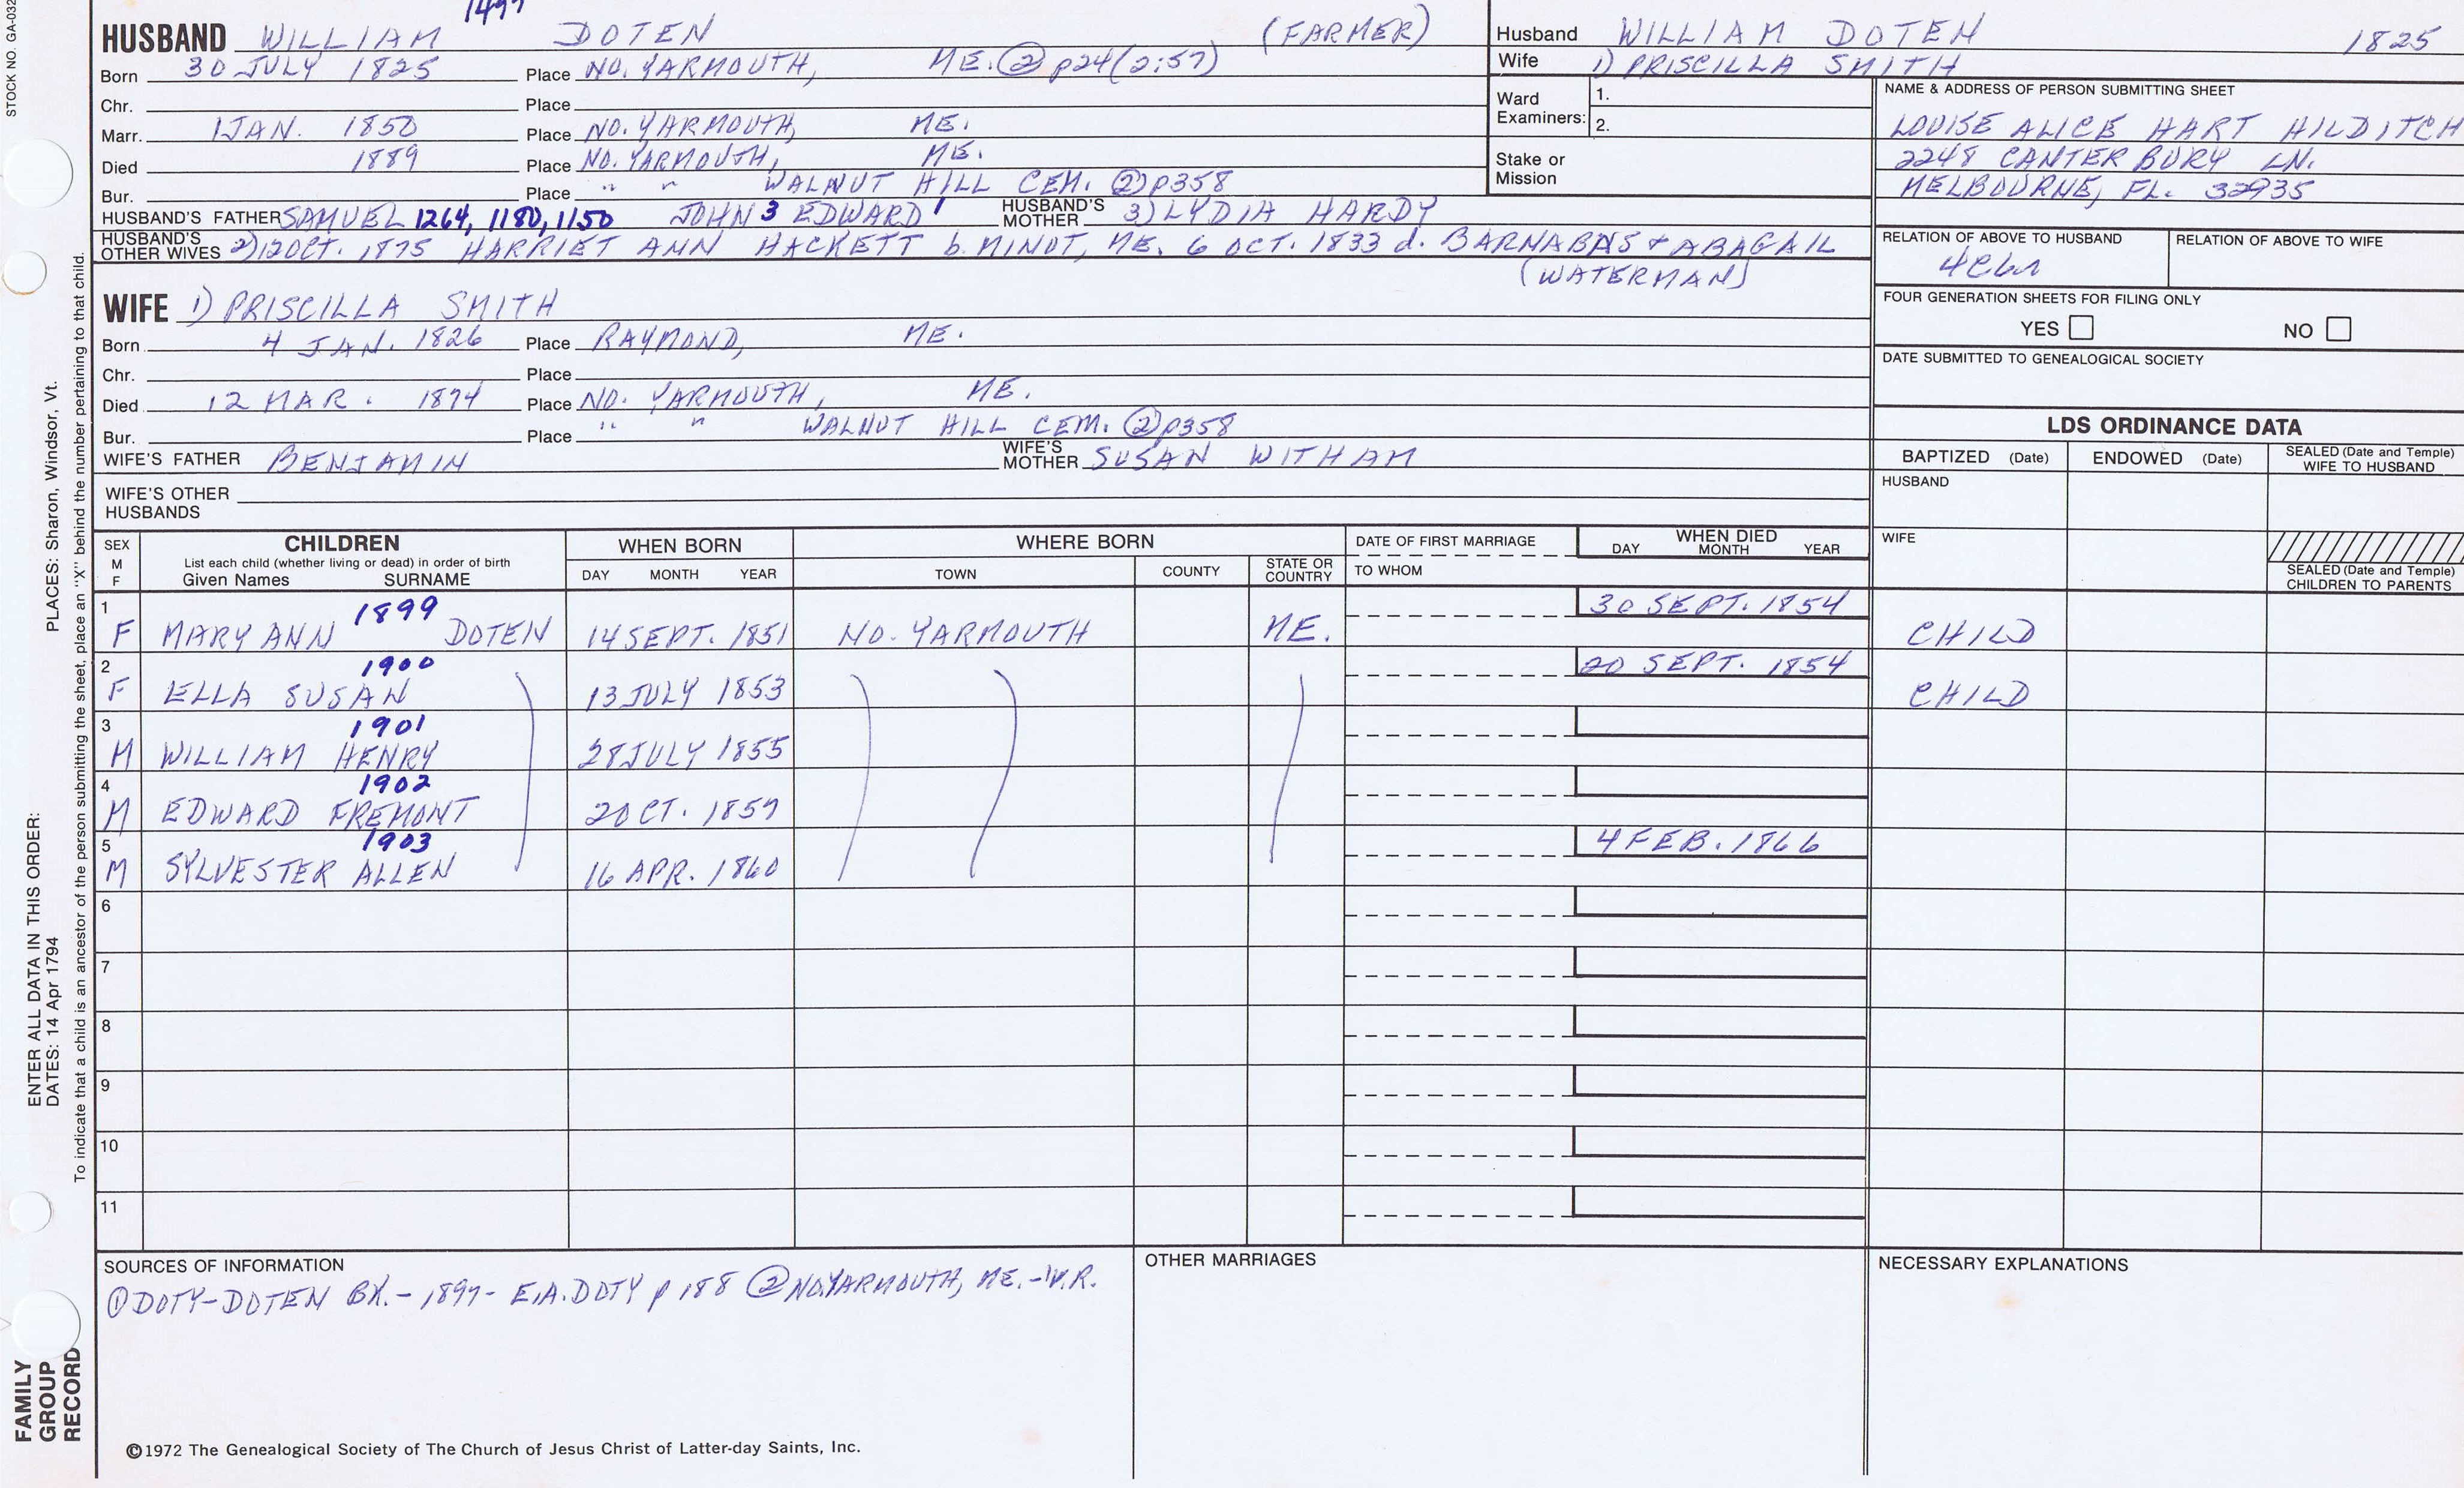 STOCK NO. GA-032
HUSBAND WILLIAM DOTEN (FARMER)
Born 30 JULY 1825 Place NO. YARMOUTH, ME. ② p24(2:57)
Chr. Place
Marr. 1 JAN. 1850 Place NO. YARMOUTH, ME.
Died 1889 Place NO. YARMOUTH, ME.
Bur. Place " " WALNUT HILL CEM. ② p358
HUSBAND'S FATHER SAMUEL 1264, 1180, 1150 JOHN 3 EDWARD 1 HUSBAND'S MOTHER 3) LYDIA HARDY
HUSBAND'S OTHER WIVES 2) 12 OCT. 1875 HARRIET ANN HACKETT b. MINOT, ME. 6 OCT. 1833 d. BARNABAS + ABAGAIL
(WATERMAN)
WIFE 1) PRISCILLA SMITH
Born 4 JAN. 1826 Place RAYMOND, ME.
Chr. Place
Died 12 MAR. 1874 Place NO. YARMOUTH, ME.
Bur. Place " " WALNUT HILL CEM. ② p358
WIFE'S FATHER BENJAMIN WIFE'S MOTHER SUSAN WITHAM
WIFE'S OTHER HUSBANDS
Husband WILLIAM DOTEN 1825
Wife 1) PRISCILLA SMITH
Ward Examiners: 1.
2.
Stake or Mission
NAME & ADDRESS OF PERSON SUBMITTING SHEET
LOUISE ALICE HART HILDITCH
2248 CANTERBURY LN.
MELBOURNE, FL. 32935
RELATION OF ABOVE TO HUSBAND RELATION OF ABOVE TO WIFE
FOUR GENERATION SHEETS FOR FILING ONLY
YES NO
DATE SUBMITTED TO GENEALOGICAL SOCIETY
LDS ORDINANCE DATA
BAPTIZED (Date) ENDOWED (Date) SEALED (Date and Temple) WIFE TO HUSBAND
HUSBAND
WIFE
SEALED (Date and Temple) CHILDREN TO PARENTS
SEX M F
CHILDREN
List each child (whether living or dead) in order of birth
Given Names SURNAME
WHEN BORN
DAY MONTH YEAR
WHERE BORN
TOWN COUNTY STATE OR COUNTRY
DATE OF FIRST MARRIAGE
TO WHOM
WHEN DIED
DAY MONTH YEAR
1 1899 30 SEPT. 1854
F MARY ANN DOTEN 14 SEPT. 1851 NO. YARMOUTH ME. CHILD
2 1900 20 SEPT. 1854
F ELLA SUSAN 13 JULY 1853 CHILD
3 1901
M WILLIAM HENRY 28 JULY 1855
4 1902
M EDWARD FREMONT 2 OCT. 1857
5 1903 4 FEB. 1866
M SYLVESTER ALLEN 16 APR. 1860
6
7
8
9
10
11
SOURCES OF INFORMATION
① DOTY-DOTEN BK. - 1897 - E.A. DOTY p 188 ② NO. YARMOUTH, ME. - V.R.
OTHER MARRIAGES
NECESSARY EXPLANATIONS
©1972 The Genealogical Society of The Church of Jesus Christ of Latter-day Saints, Inc.
ENTER ALL DATA IN THIS ORDER:
DATES: 14 Apr 1794
PLACES: Sharon, Windsor, Vt.
To indicate that a child is an ancestor of the person submitting the sheet, place an "X" behind the number pertaining to that child.
FAMILY
GROUP
RECORD